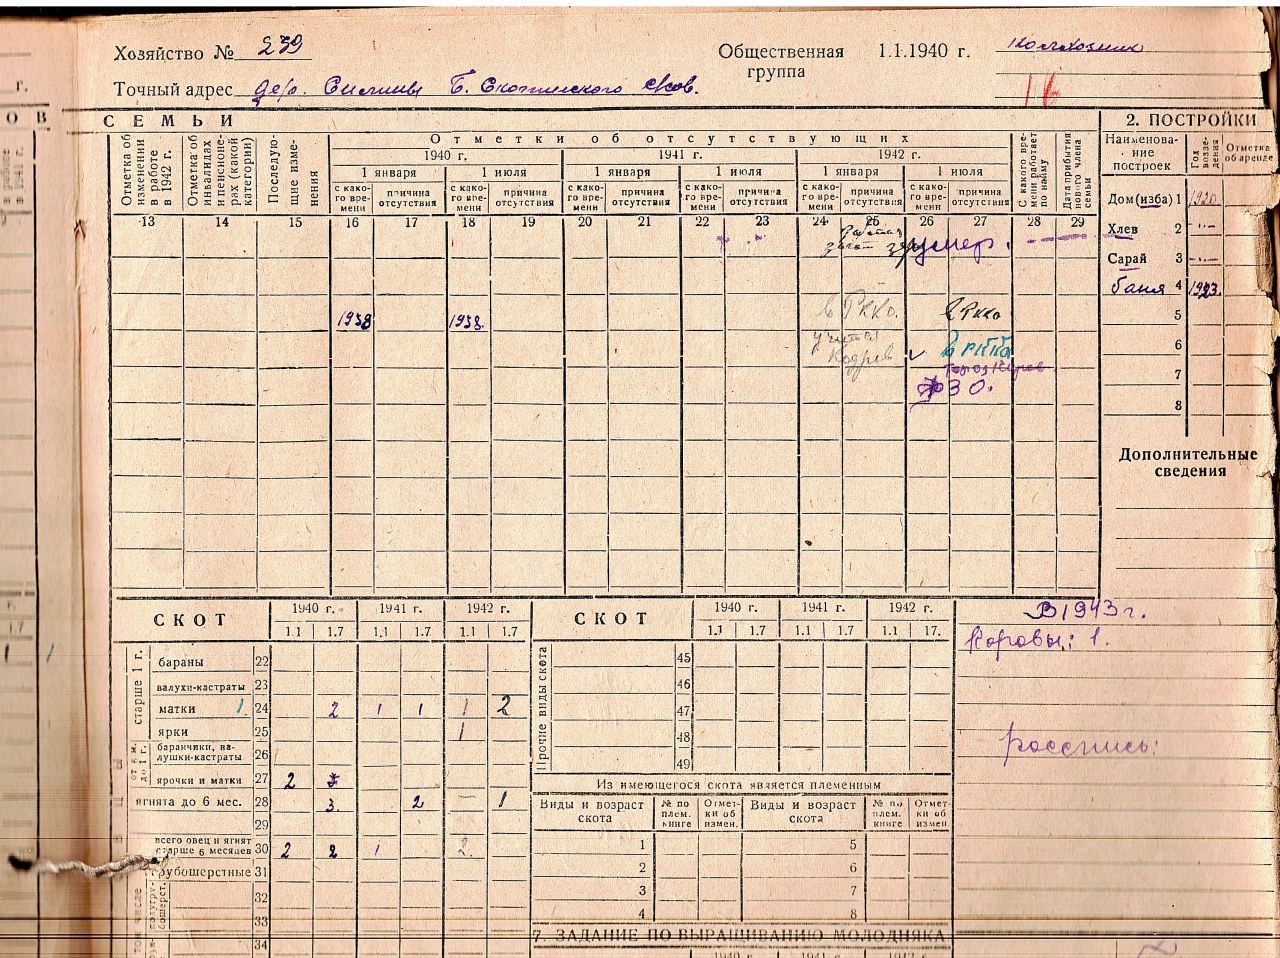 Хозяйство № 239
Общественная группа 1.I.1940 г. колхозник
Точный адрес дер. Б. Скотинского
16
г.
О В
СЕМЬИ
Отметка об изменении в работе в 1942 г.
Отметка об инвалидах и пенсионерах (какой категории)
Последующие изменения
Отметки об отсутствующих
1940 г. 1941 г. 1942 г.
1 января 1 июля 1 января 1 июля 1 января 1 июля
с како-го вре-мени причина отсутствия с како-го вре-мени причина отсутствия с како-го вре-мени причина отсутствия с како-го вре-мени причина отсутствия с како-го вре-мени причина отсутствия с како-го вре-мени причина отсутствия
С какого вре-мени работает по найму
Дата прибытия нового члена семьи
13 14 15 16 17 18 19 20 21 22 23 24 25 26 27 28 29
умер.
1938 1938. в РККА. в РККА
Кадров в РККА
30.
2. ПОСТРОЙКИ
Наименова-ние построек Год возве-дения Отметка об аренде
Дом (изба) 1 1920
Хлев 2 -"-
Сарай 3 -"-
баня 4 1923.
5
6
7
8
Дополнительные сведения
СКОТ 1940 г. 1941 г. 1942 г.
1.1 1.7 1.1 1.7 1.1 1.7
старше 1 г.
бараны 22
валухи-кастраты 23
матки 1 24 2 1 1 1 2
ярки 25 1
от 6 м. до 1 г.
баранчики, ва-лушки-кастраты 26
ярочки и матки 27 2
ягнята до 6 мес. 28 3. 2 — 1
29
всего овец и ягнят старше 6 месяцев 30 2 2 1 2.
грубошерстные 31
32
33
34
СКОТ 1940 г. 1941 г. 1942 г.
1.1 1.7 1.1 1.7 1.1 17.
Прочие виды скота
45
46
47
48
49
Из имеющегося скота является племенным
Виды и возраст скота № по плем. книге Отмет-ки об измен. Виды и возраст скота № по плем. книге Отмет-ки об измен.
1 5
2 6
3 7
4 8
7. ЗАДАНИЕ ПО ВЫРАЩИВАНИЮ МОЛОДНЯКА
1940 г. 1941 г. 1942 г.
В 1943 г.
Коровы: 1.
роспись: